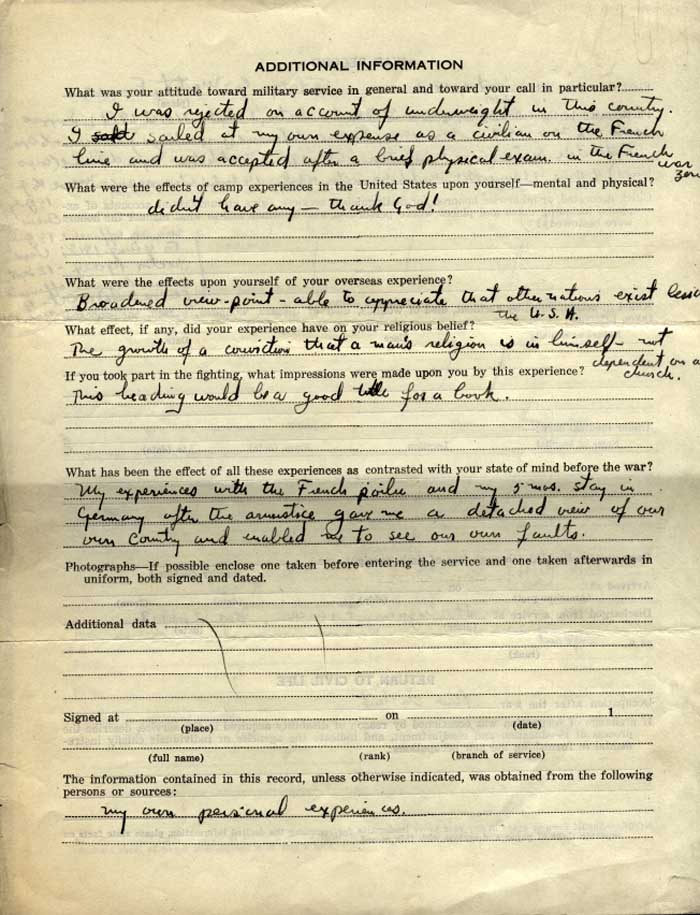 ADDITIONAL INFORMATION
What was your attitude toward military service in general and toward your call in particular?
I was rejected on account of underweight in this country.
I sailed at my own expense as a civilian on the French
line and was accepted after a brief physical exam. in the French
war zone
What were the effects of camp experiences in the United States upon yourself—mental and physical?
didn't have any — thank God!
What were the effects upon yourself of your overseas experience?
Broadened view-point - able to appreciate that other nations exist besides
the U.S.A.
What effect, if any, did your experience have on your religious belief?
The growth of a conviction that a man's religion is in himself - not
dependent on a
church.
If you took part in the fighting, what impressions were made upon you by this experience?
This heading would be a good title for a book.
What has been the effect of all these experiences as contrasted with your state of mind before the war?
My experiences with the French poilu and my 5 mos. stay in
Germany after the armistice gave me a detached view of our
own country and enabled me to see our own faults.
Photographs—If possible enclose one taken before entering the service and one taken afterwards in
uniform, both signed and dated.
Additional data
Signed at on 1
(place) (date)
(full name) (rank) (branch of service)
The information contained in this record, unless otherwise indicated, was obtained from the following
persons or sources:
my own personal experiences.
RETURN TO CIVIL LIFE